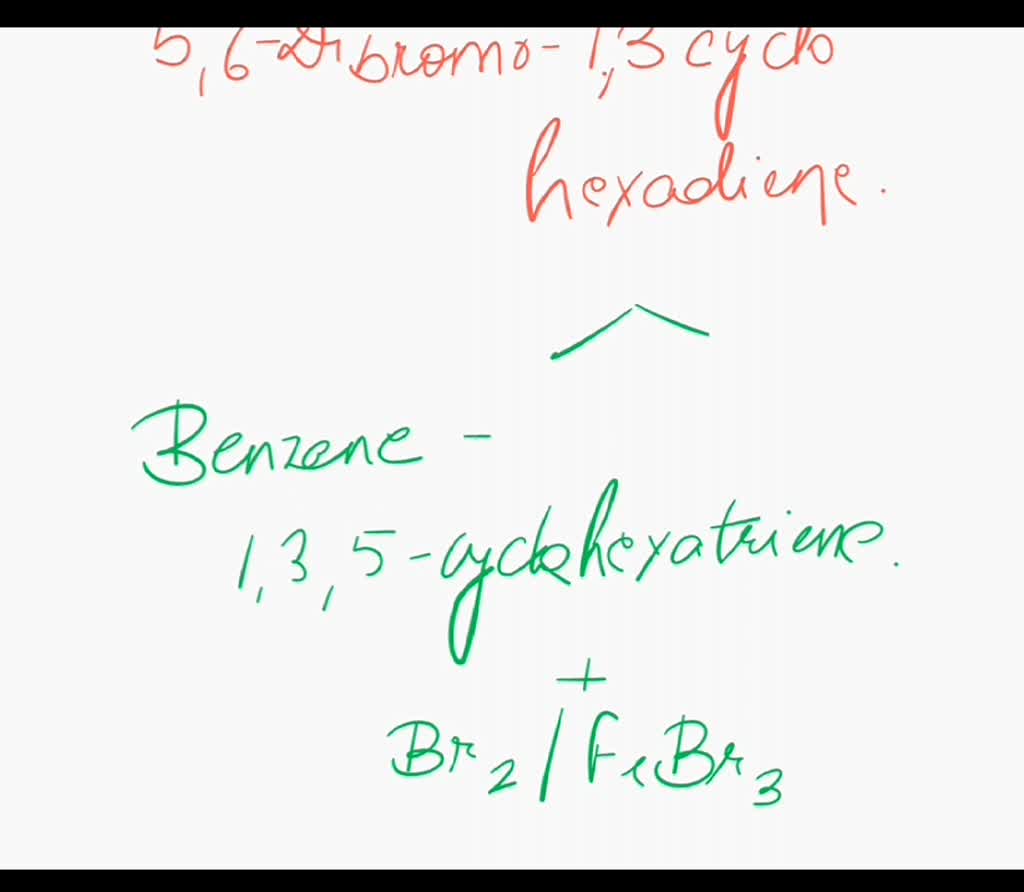 5,6-Dibromo-1,3 cyclo
hexadiene.
Benzene -
1,3,5-cyclohexatriene.
+
Br2/FeBr3